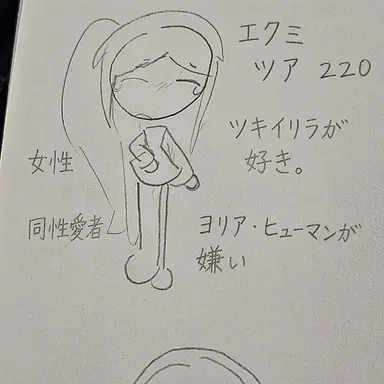 エクミ
ツア 220
ツキイリラが
好き。
女性
同性愛者
ヨリア・ヒューマンが
嫌い